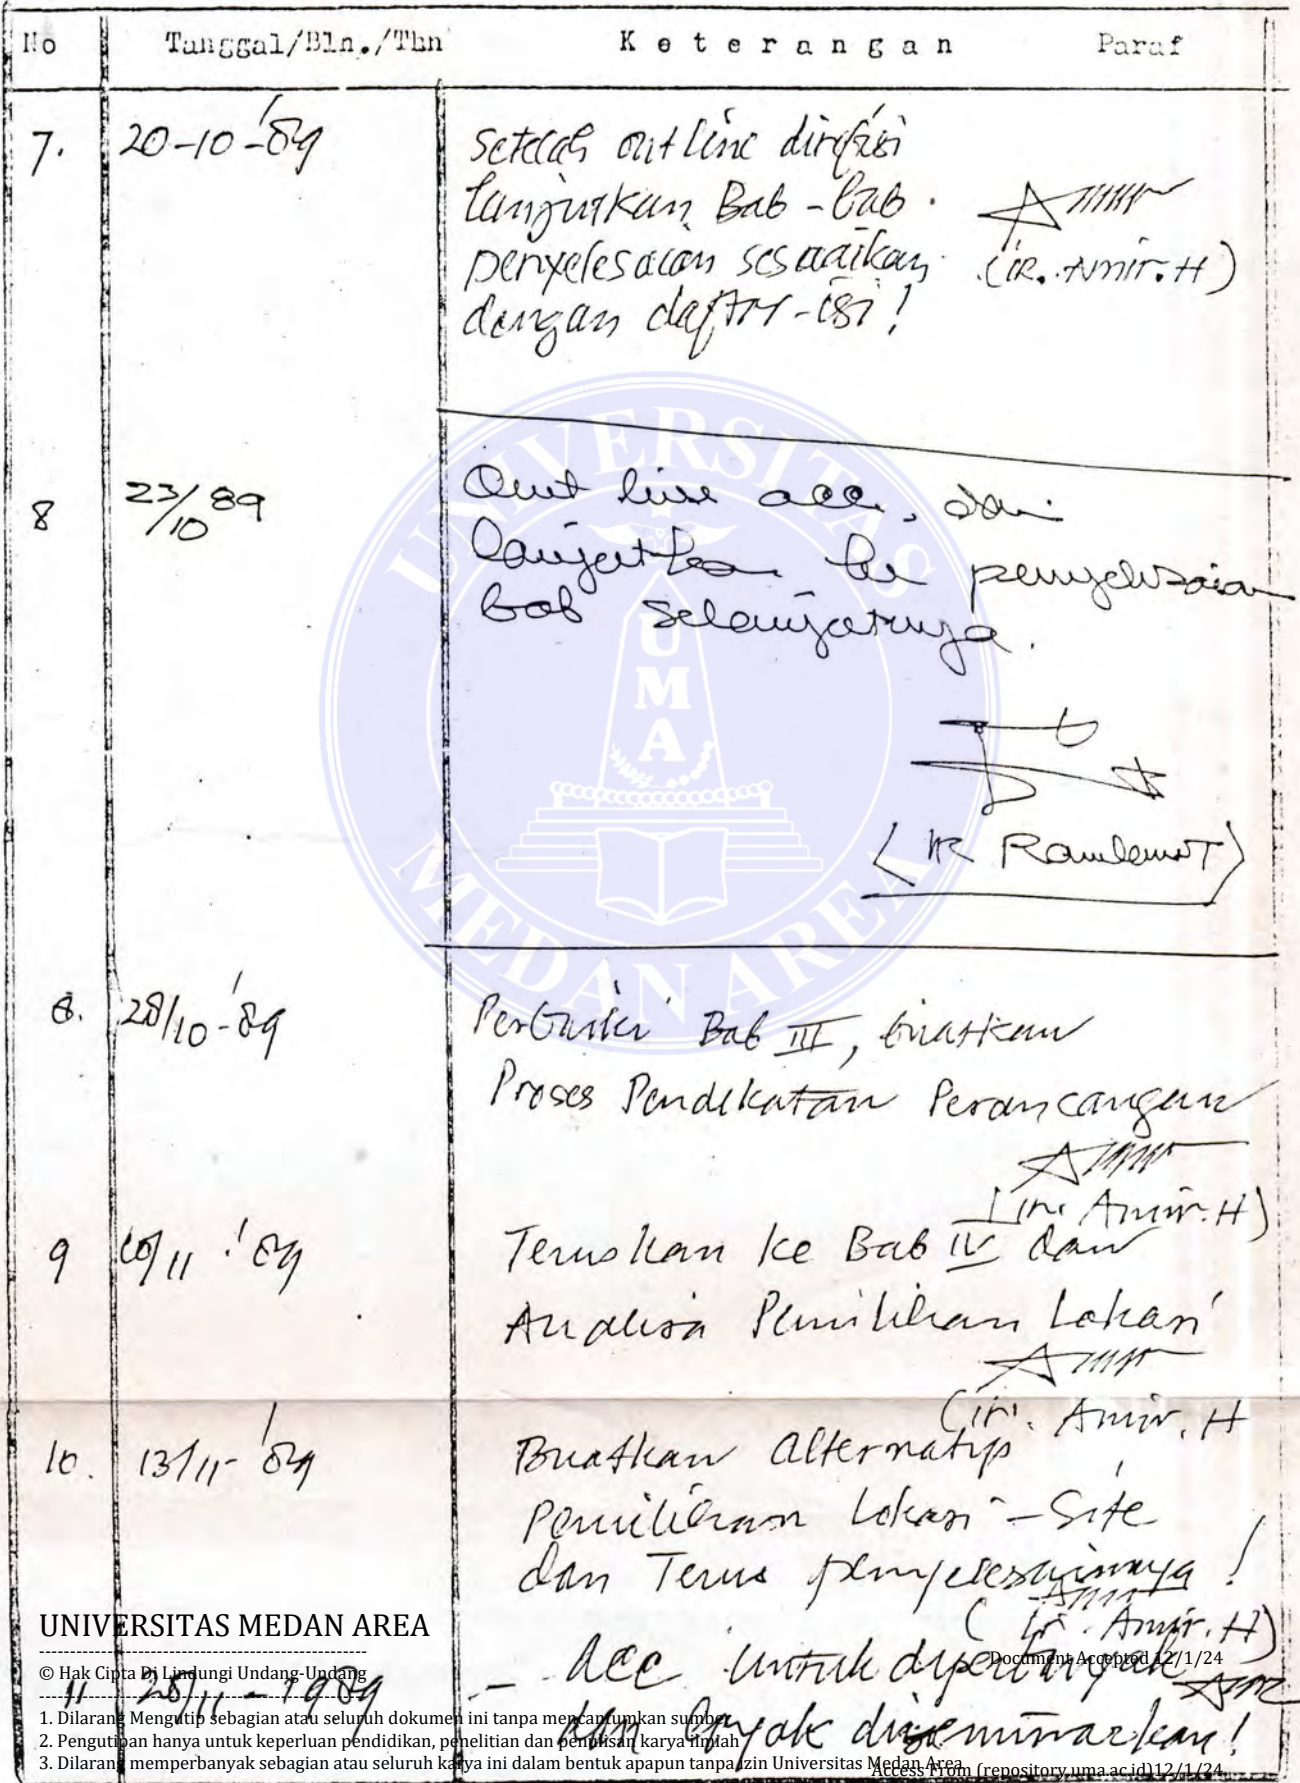 No Tanggal/Bln./Thn K e t e r a n g a n Paraf
7. 20-10-'89 Setelah outline direfisi
lanjutkan Bab-bab
penyelesaian sesuaikan (IR. Amir. H)
dengan daftar-isi!
8 23/10 89 Out line acc, dan
lanjutkan ke penyelesaian
bab selanjutnya.
UNIVERSITAS MEDAN AREA
UMA
8. 28/10-'89 Perbaiki Bab III, buatkan
Proses Pendekatan Perancangan
(Ir. Amir. H)
9 /11 '89 Teruskan ke Bab IV dan
Analisa Pemilihan Lokasi
(Ir. Amir. H
10. 13/11-'89 Buatkan alternatip
Pemilihan Lokasi-Site
dan Terus penyelesainnya!
(Ir. Amir. H)
11 28/11-1989 - Acc untuk diperbanyak
dan layak diseminarkan!
UNIVERSITAS MEDAN AREA
© Hak Cipta Di Lindungi Undang-Undang
Document Accepted 12/1/24
1. Dilarang Mengutip sebagian atau seluruh dokumen ini tanpa mencantumkan sumber
2. Pengutipan hanya untuk keperluan pendidikan, penelitian dan penulisan karya ilmiah
3. Dilarang memperbanyak sebagian atau seluruh karya ini dalam bentuk apapun tanpa izin Universitas Medan Area
Access From (repository.uma.ac.id)12/1/24